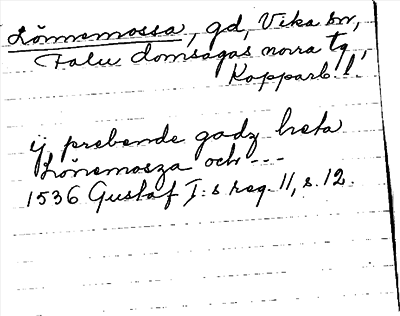 Lönnemossa, gd, Vika sn,
Falu domsagas norra tg,
Kopparb. l.
ij prebende godz heta
Lönemosza och ---
1536 Gustaf I:s reg. 11, s. 12.